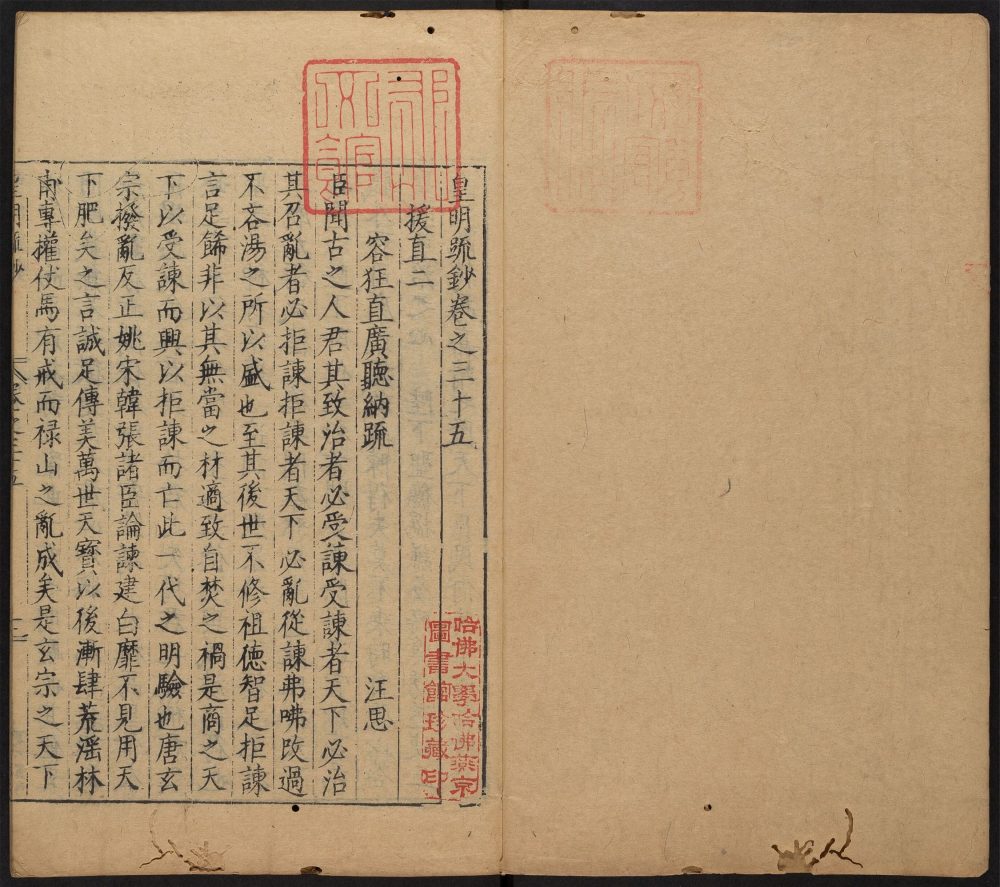 皇明疏鈔卷之三十五
援直二
容狂直廣聽納疏 汪思
臣聞古之人君其致治者必受諫受諫者天下必治
其召亂者必拒諫拒諫者天下必亂從諫弗咈改過
不吝湯之所以盛也至其後世不修祖德智足拒諫
言足餙非以其無當之材適致自焚之禍是商之天
下以受諫而興以拒諫而亡此一代之明驗也唐玄
宗撥亂反正姚宋韓張諸臣論諫建白靡不見用天
下肥矣之言誠足傳美萬世天寶以後漸肆荒滛林
甫專權仗馬有戒而禄山之亂成矣是玄宗之天下
皇明疏鈔 卷之三十五 一
哈佛大學哈佛燕京
圖書館珍藏印